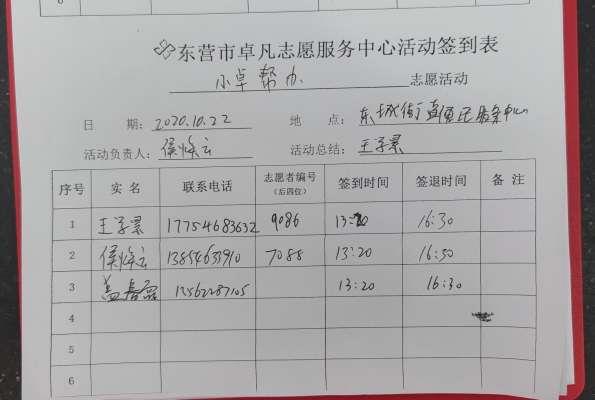 6
东营市卓凡志愿服务中心活动签到表
小卓帮办 志愿活动
日 期: 2020.10.22 地 点: 东城街道便民服务中心
活动负责人: 侯 活动总结: 王
序号 实名 联系电话 志愿者编号(后四位) 签到时间 签退时间 备注
1 王 17754683632 9086 13:20 16:30
2 侯 7088 13:20 16:30
3 盖 13:20 16:30
4
5
6